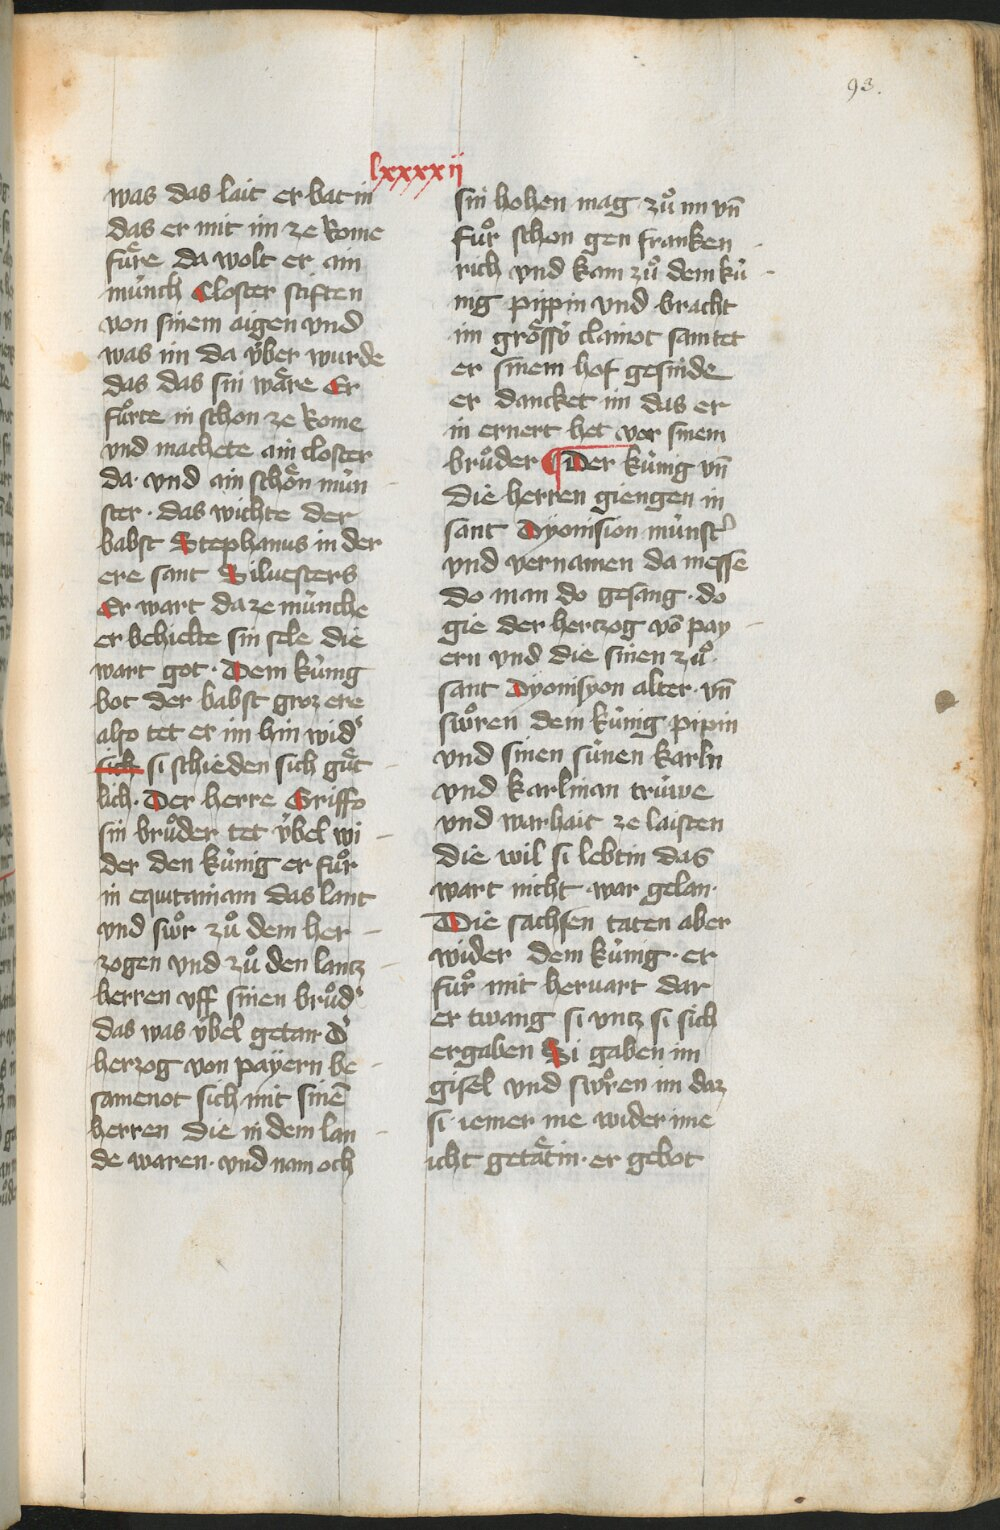 93.
lxxxxii
was das lait er bat in
das er mit im ze Rome
fuͤre da wolt er ain
mu̇nch Closter stiften
von sinem aigen vnd
was im da v̇ber wurde
das das sin waͤre Er
fuͦrte in schon ze Rome
vnd machete ain closter
da· vnd ain schoͤn mu̇n
ster· das wichte der
babst Stephanus in der
ere sant Siluesters
Er wart da ze mu̇nche
er behielte sin sele die
wart got· Dem ku̇nig
bot der babst groz ere
also tet er im hin wid᾽
sich si schieden sich guͤt
lich· Der herre Griffo
sin bruͦder tet v̇bel wi
der den ku̇nig er fuͦr
in equitaniam das lant
vnd swuͦr zuͦ dem her
zogen vnd zuͦ den lantz
herren vff sinen bruͦd᾽
das was v̇bel getan D᾽
herzog von payern be
samenot sich mit sinē
herren die in dem lan
de waren· vnd nam och
sin hohen mag zuͦ im vn̄
fuͦr schon gen franken
rich vnd kam zuͦ dem ku̇
nig pippin vnd bracht
im groͤssv̇ clainot samtet
er sinem hof gesinde
er dancket im das er
in ernert het vor sinem
bruͦder ¶ Der ku̇nig vn̄
die herren giengen in
sant Dyonision mu̇nst᾽
vnd vernamen da messe
do man do gesang· do
gie der hertzog vō pay
ern vnd die sinen zuͦ·
sant Dyonisyon alter· vn̄
swuͦren dem ku̇nig pipin
vnd sinen su̇nen karln
vnd karlman tru̇we
vnd warhait ze laisten
die wil si lebtin das
wart nicht war gelan·
Die sachsen taten aber
wider dem ku̇nig· er
fuͦr mit heruart dar
er twang si vntz si sich
ergaben Si gaben im
gisel vnd swuͦren im daz
si iemer me wider ime
icht getaͤtin· er gebot